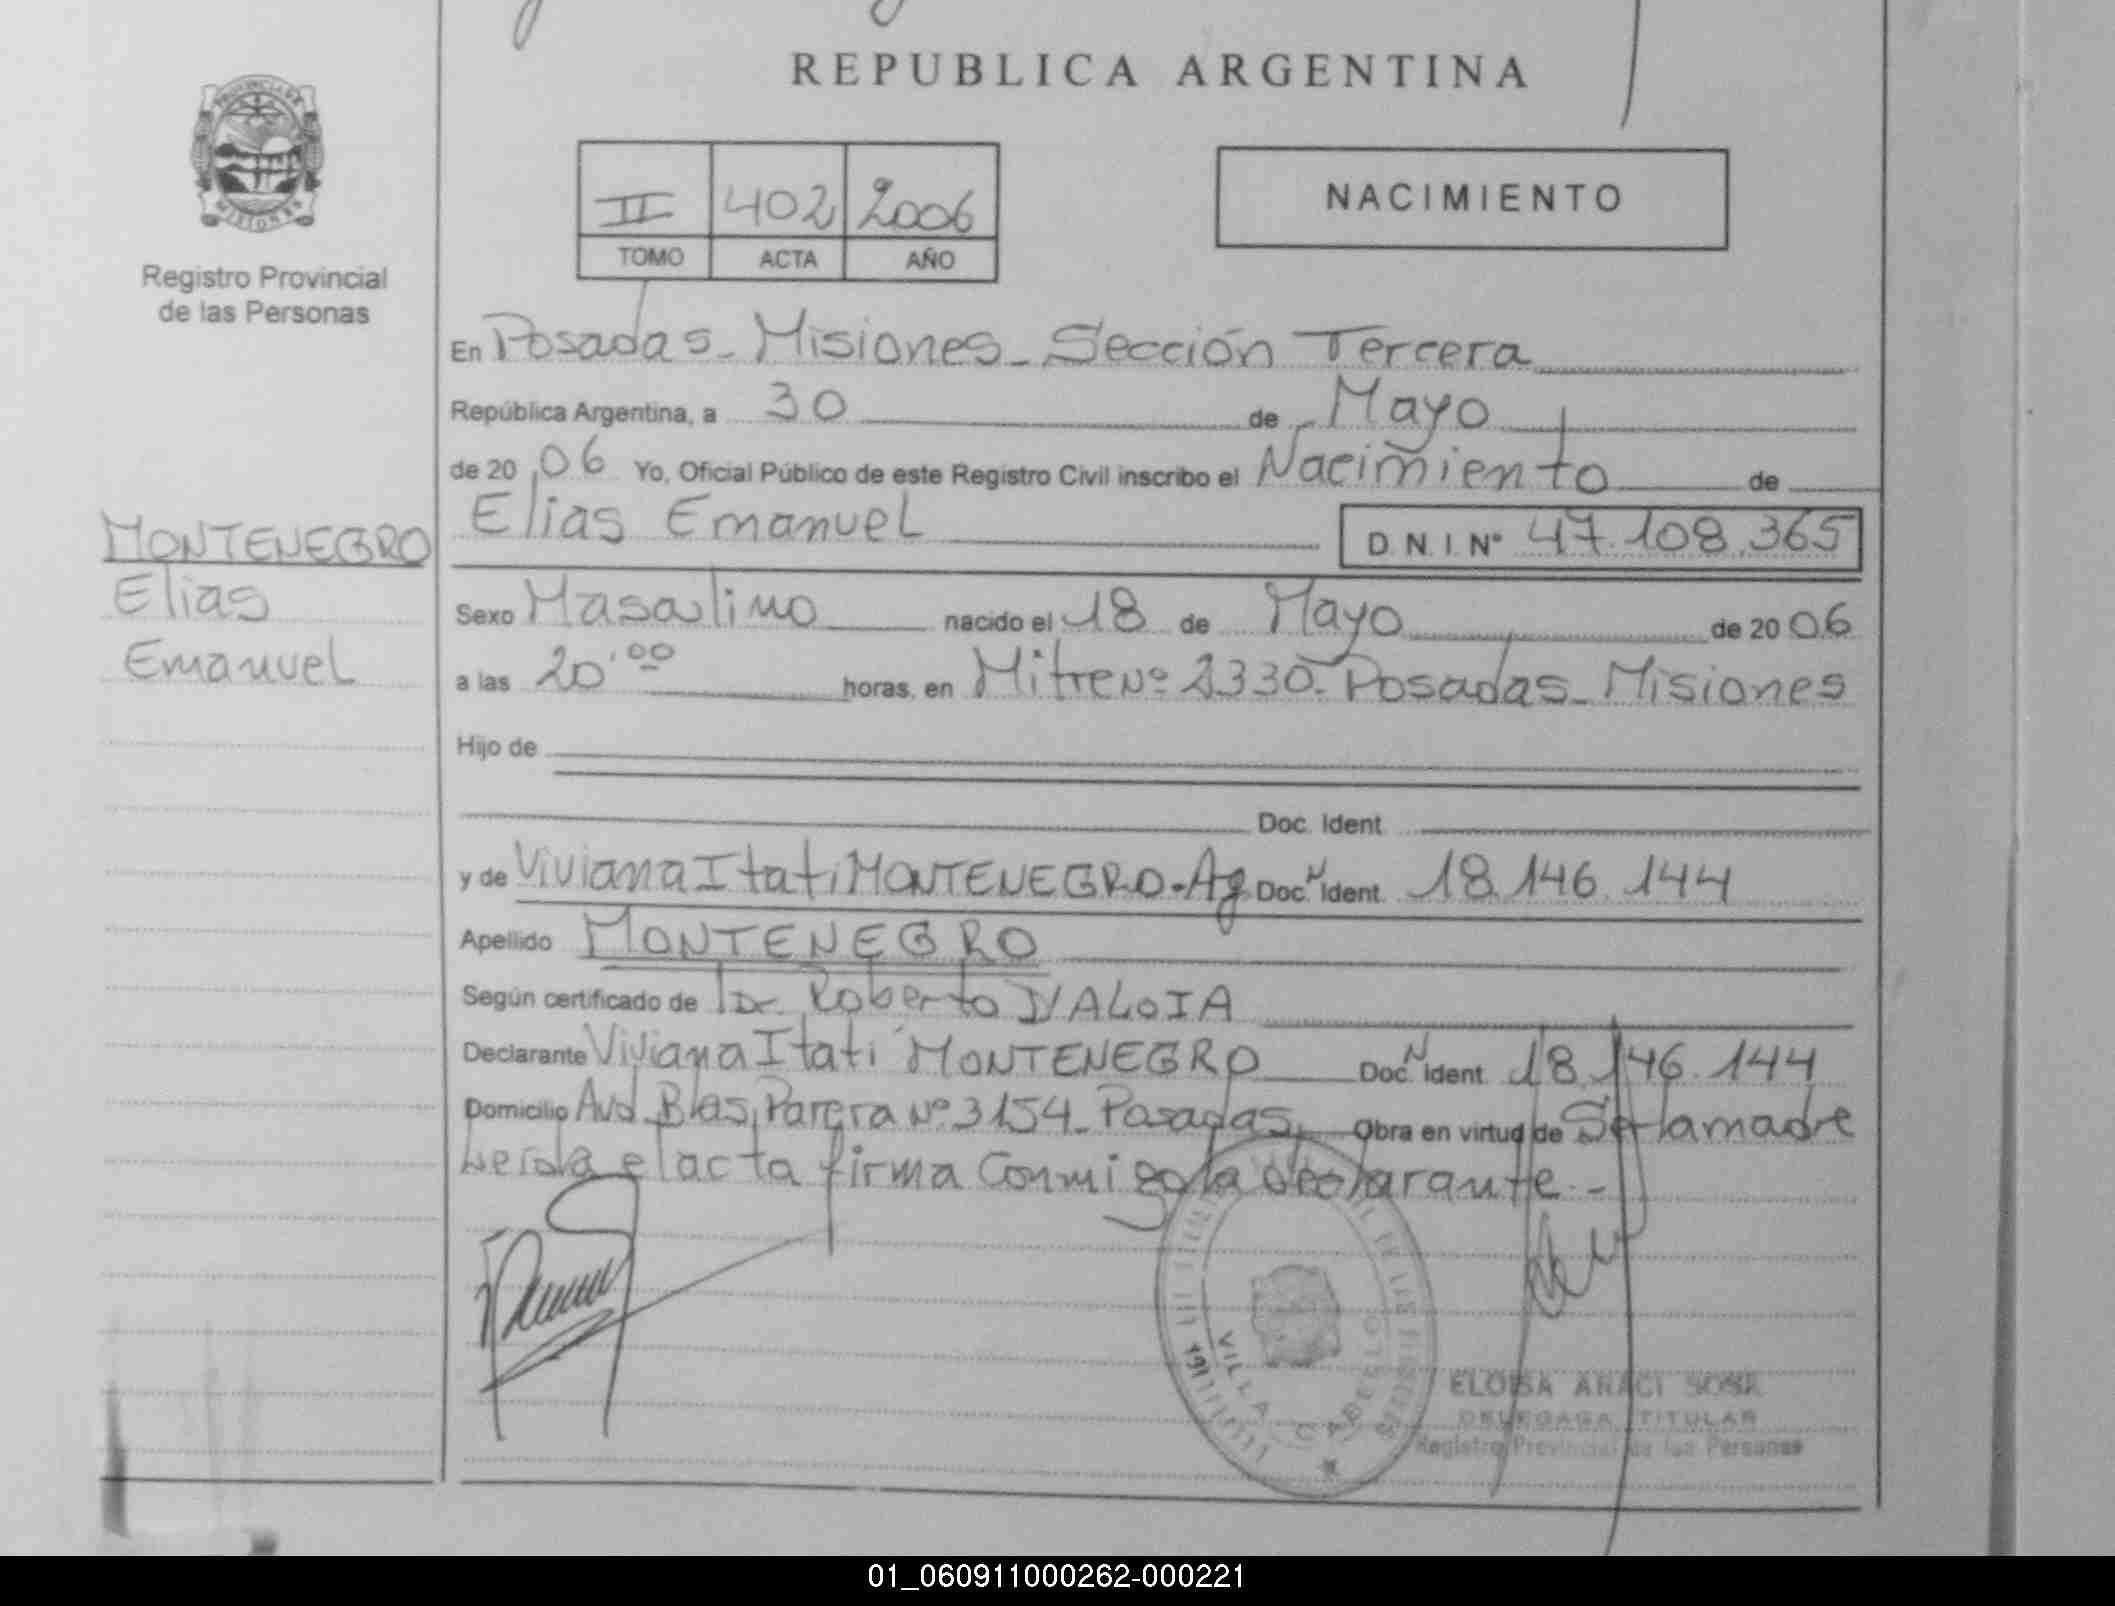 REPUBLICA ARGENTINA
PROVINCIA DE
MISIONES
Registro Provincial
de las Personas
II 402 2006
TOMO ACTA AÑO
NACIMIENTO
En Posadas - Misiones - Sección Tercera
República Argentina, a 30 de Mayo
de 20 06 Yo, Oficial Público de este Registro Civil inscribo el Nacimiento de
MONTENEGRO
Elias
Emanuel
Elias Emanuel D.N.I. Nº 47.108.365
Sexo Masculino nacido el 18 de Mayo de 20 06
a las 20.00 horas, en Mitre Nº 2330 - Posadas - Misiones
Hijo de
Doc. Ident.
y de Viviana Itati MONTENEGRO - Ag Doc. N Ident. 18.146.144
Apellido MONTENEGRO
Según certificado de Dr. Roberto D'ALOIA
Declarante Viviana Itati MONTENEGRO Doc. N Ident. 18.146.144
Domicilio Avd. Blas Parera Nº 3154 - Posadas Obra en virtud de Ser la madre
Leida el acta firma Conmigo la declarante. -
VILLA CABELLO
ELOISA ARACI SOSA
DELEGADA TITULAR
Registro Provincial de las Personas
01_060911000262-000221